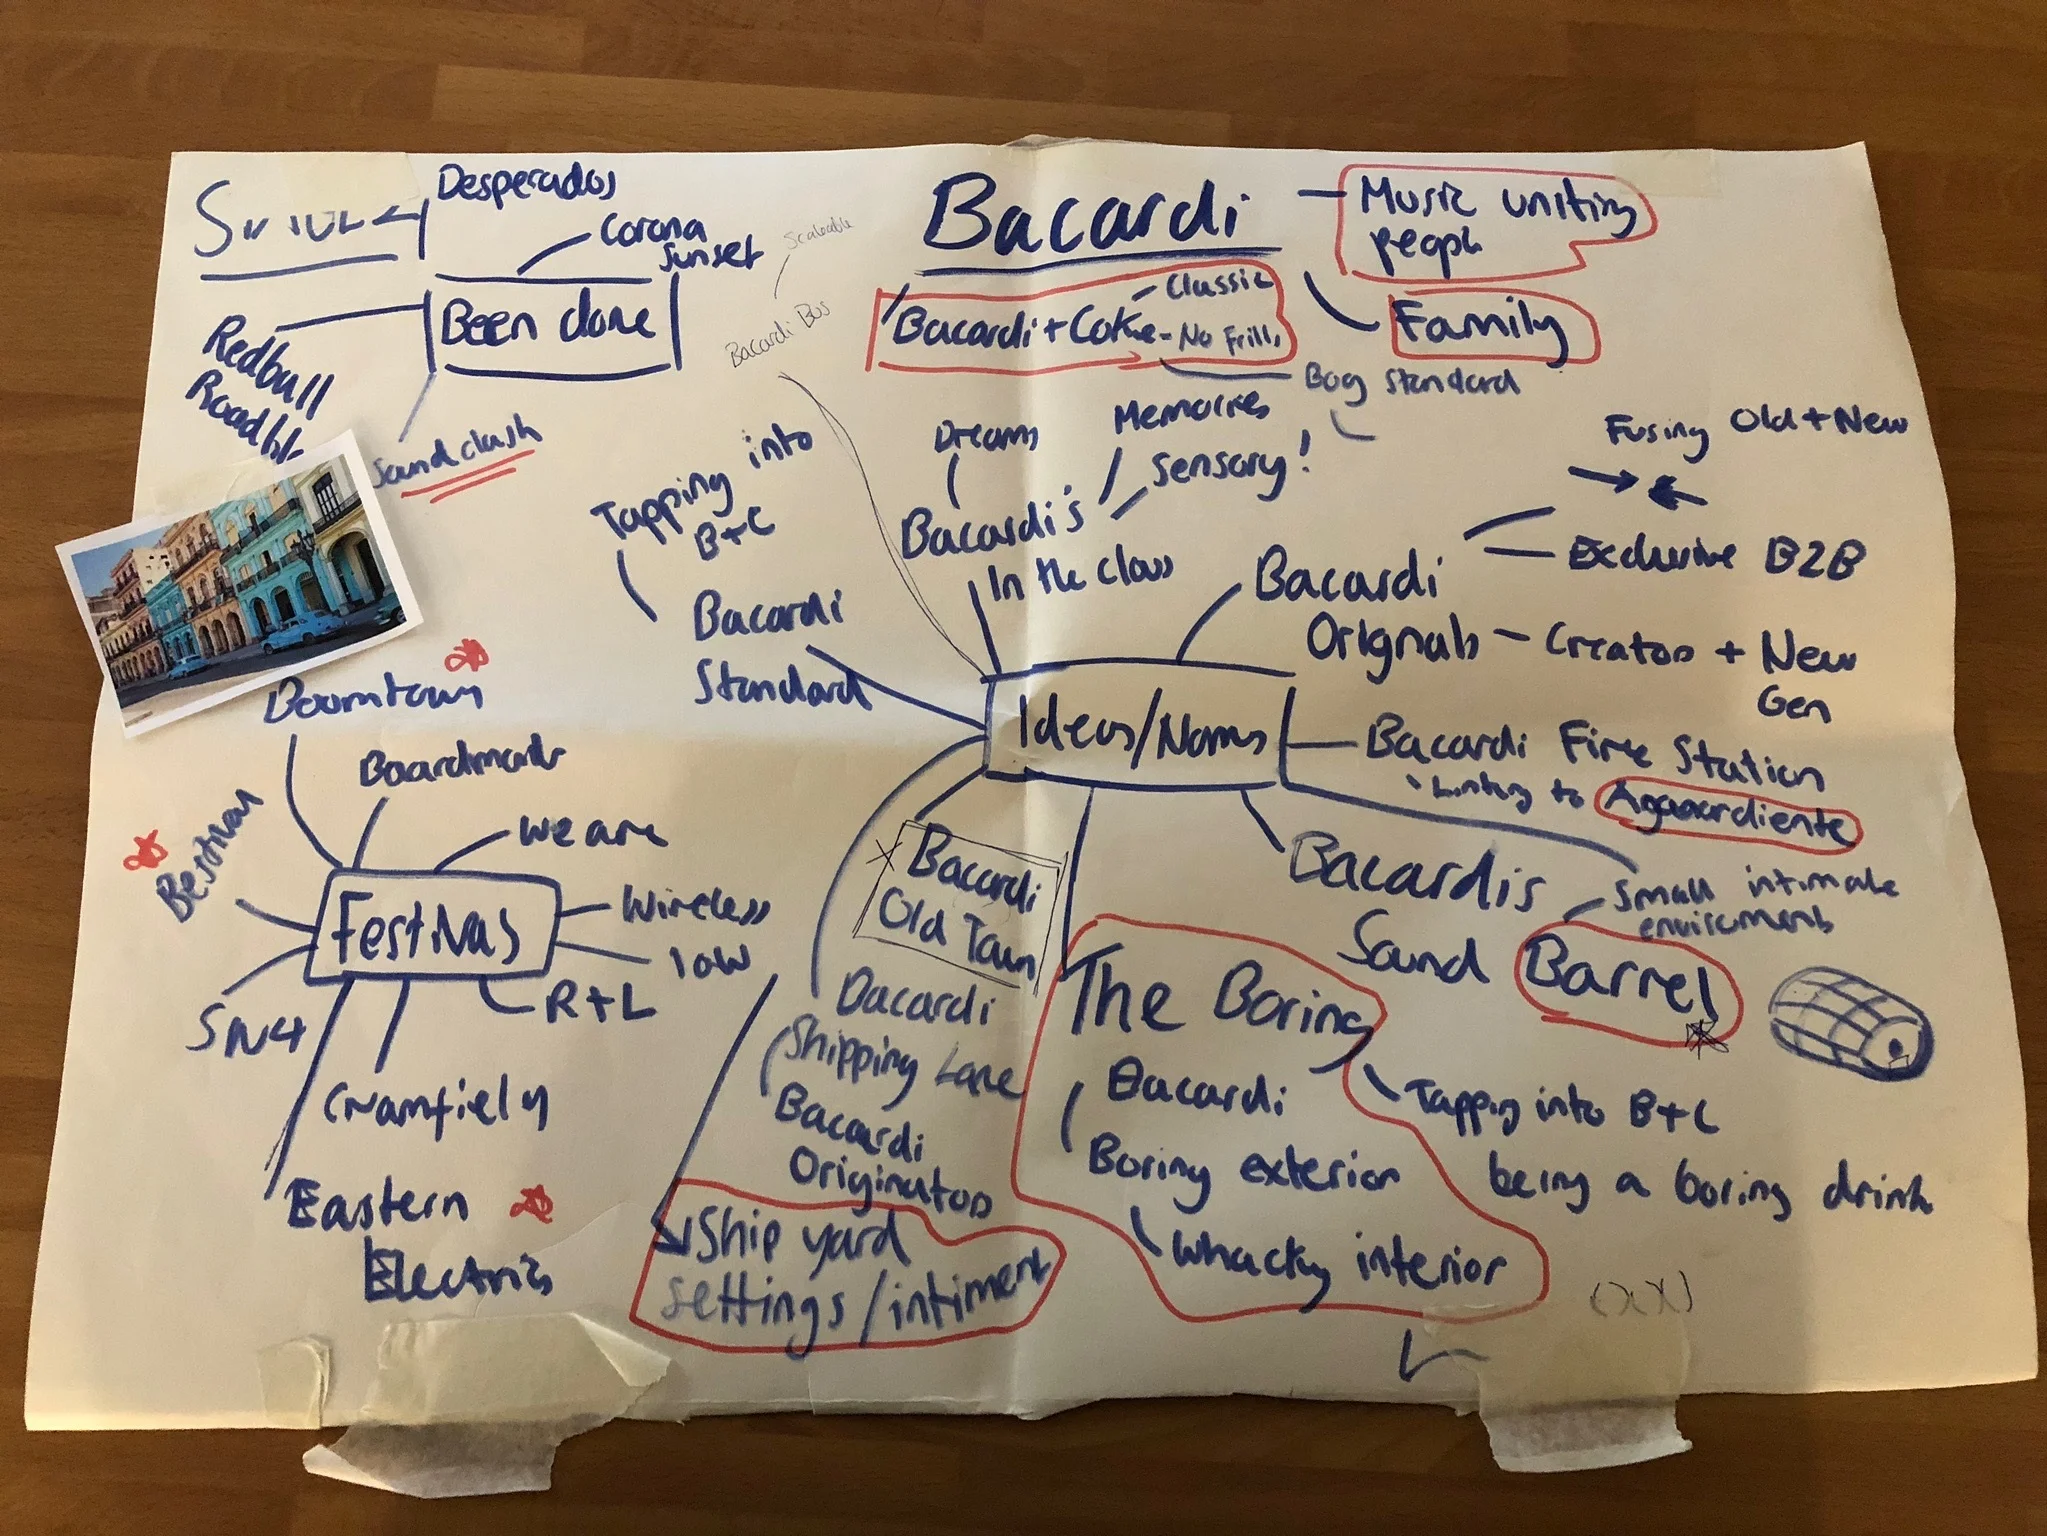 Desperados
Corona
Sunset
Been done
Redbull
Sound clash
Scaleable
Bacardi Bus
Bacardi
Music uniting
people
Family
Bacardi + Coke
Classic
- No Frills
Bog Standard
Dreams
Memories
Sensory!
Bacardi's
In the Class
Tapping into
B+C
Bacardi
Standard
Fusing Old + New
Exclusive B2B
Bacardi
Orignals - Creators + New
Gen
Ideas/Names
Bacardi Fire Station
Linking to Aguardiente
Small intimate
enviroments
Bacardis
Sound Barrel
Bacardi
Old Town
Bacardi
Shipping Lane
Bacardi
Originators
Ship yard
settings/intiment
The Boring
Bacardi
Boring exterior
Whacky interior
Tapping into B+C
being a boring drink
Boomtown
Boardmasters
Bestival
We are
Festivals
Wireless
IOW
R+L
SW4
Creamfields
Eastern
Electrics